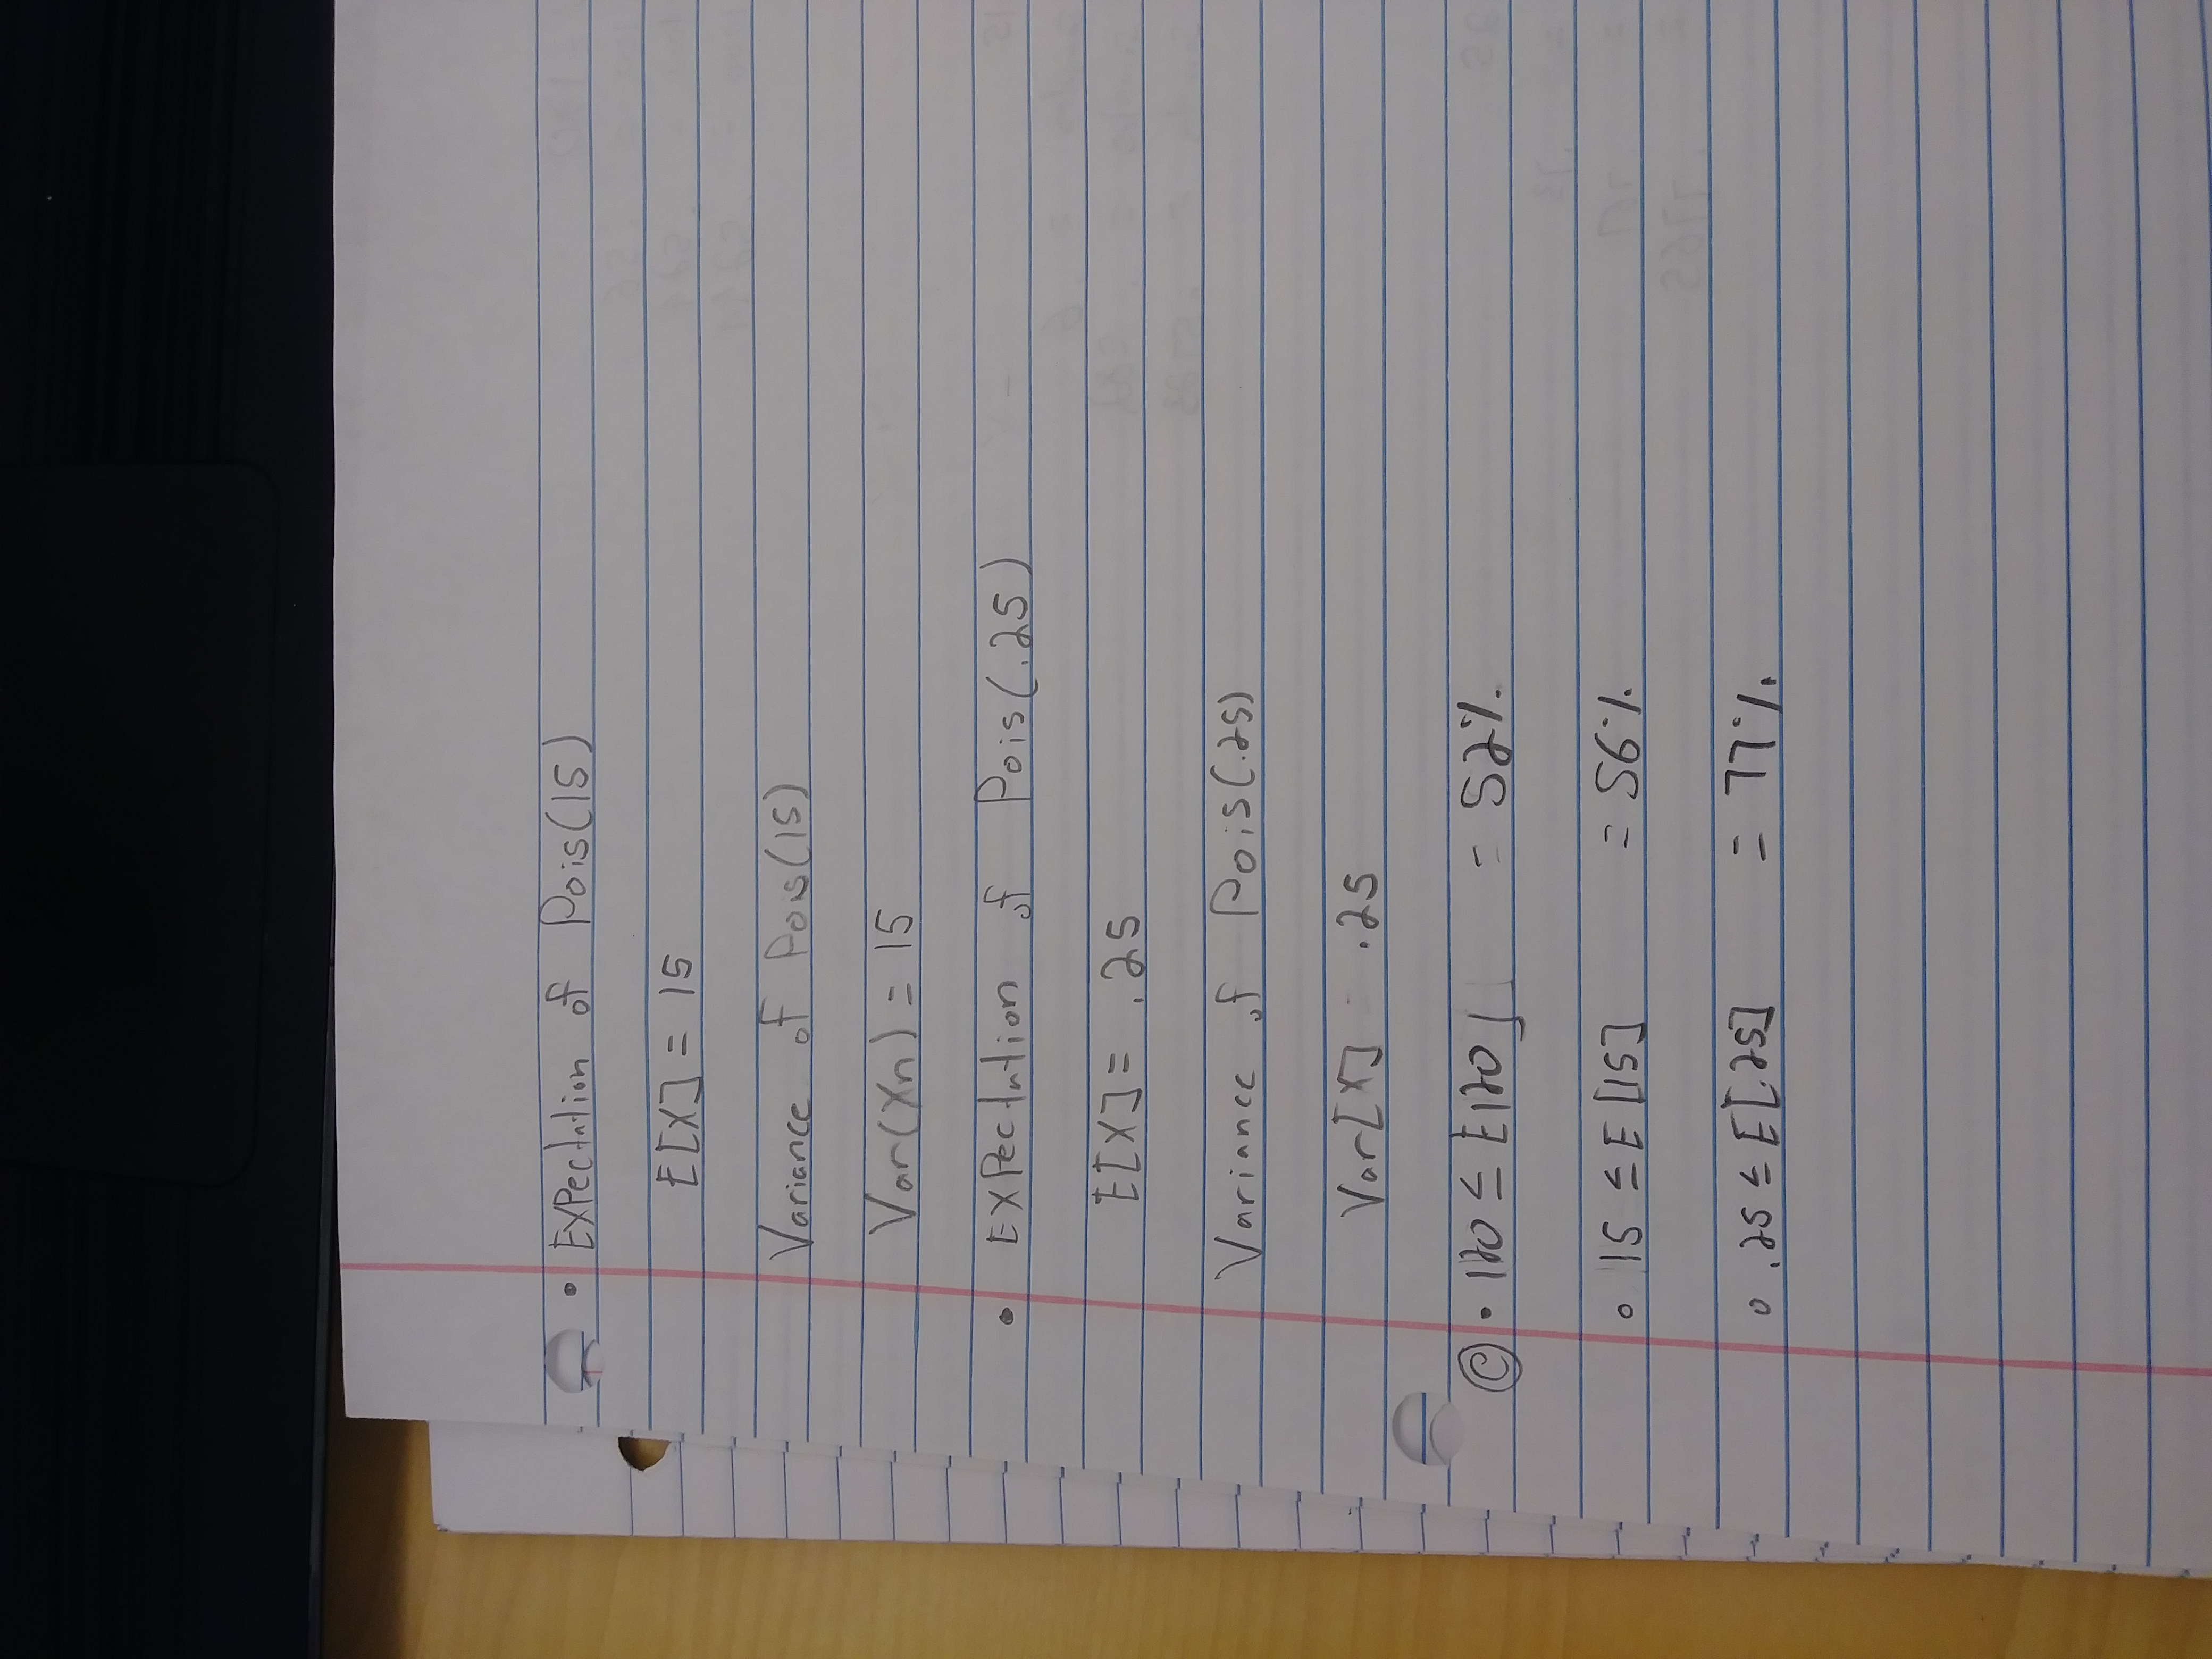 • Expectation of Pois(15)
E[X] = 15
Variance of Pois(15)
Var(Xn) = 15
• Expectation of Pois(.25)
E[X] = .25
Variance of Pois(.25)
Var[X] = .25
Ⓒ • 120 ≤ E[120] = 52%
• 15 ≤ E[15] = 56%
• .25 ≤ E[.25] = 77%